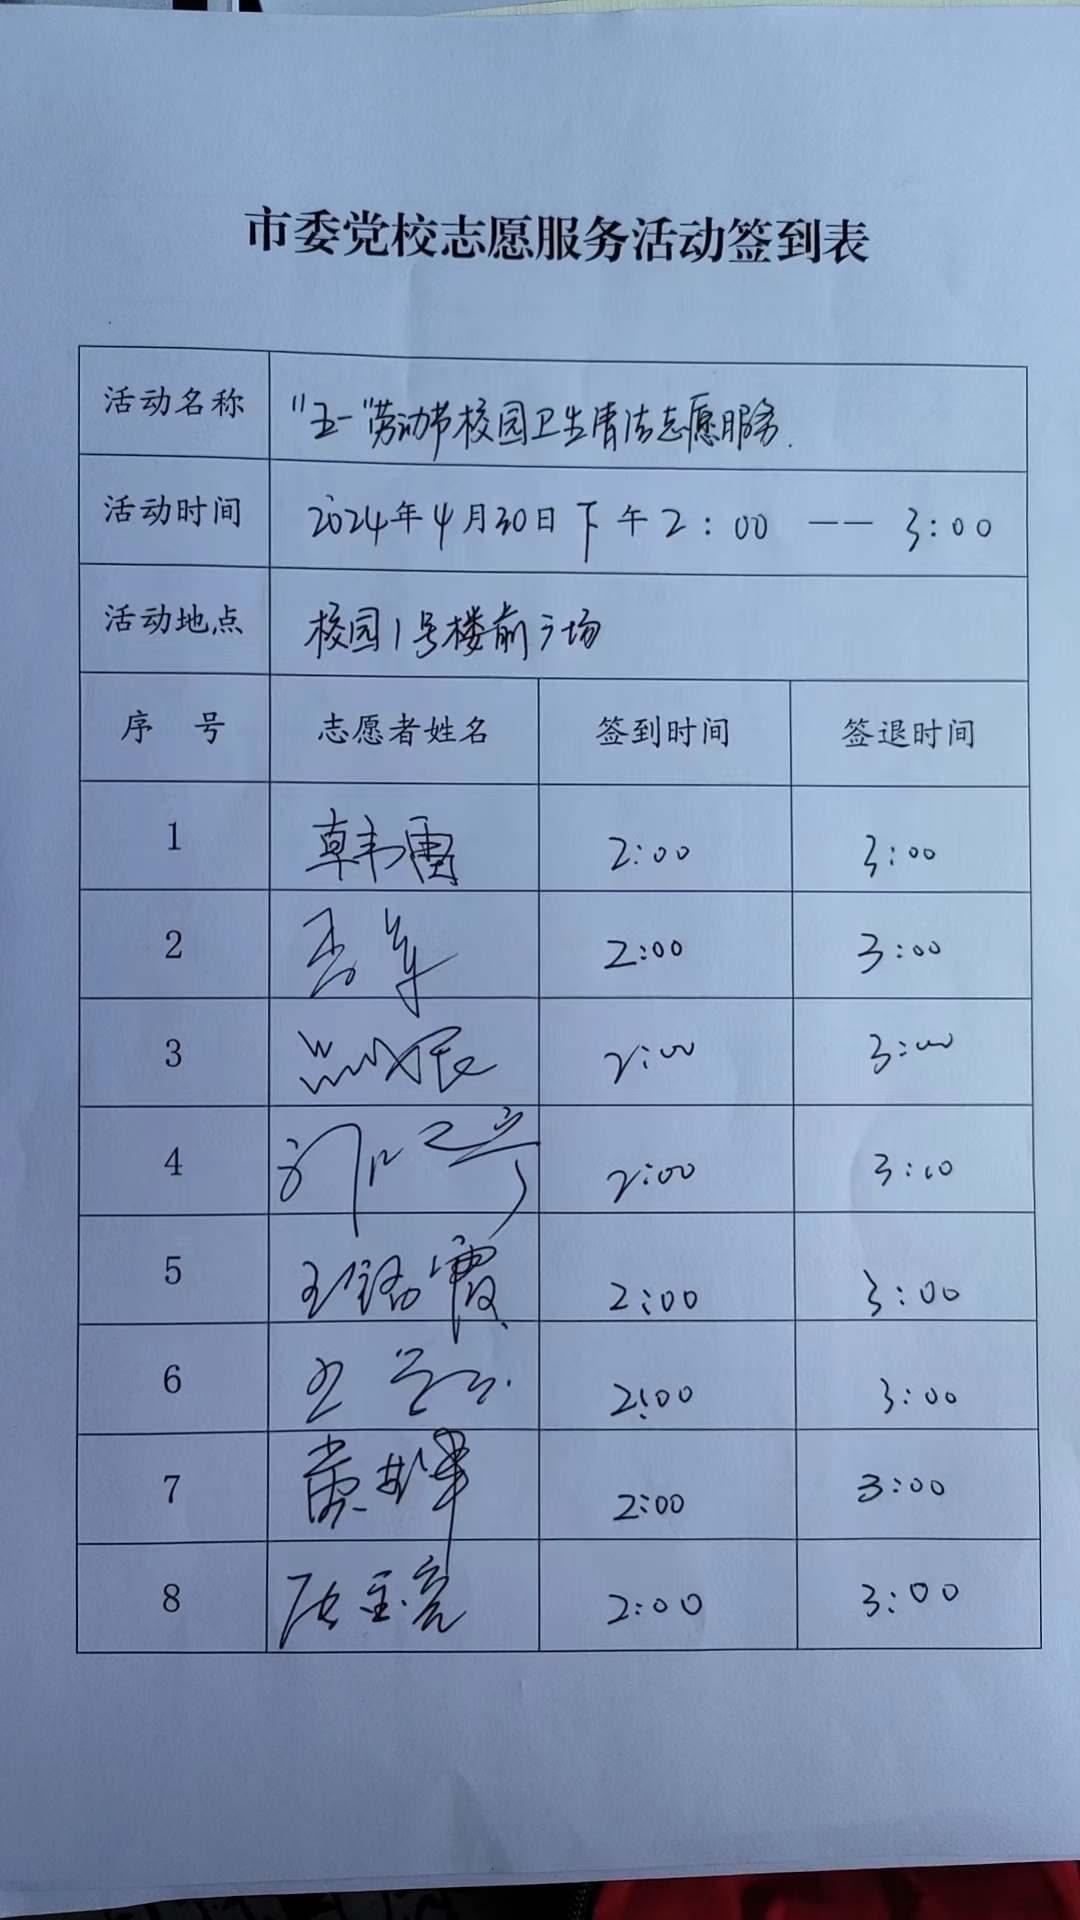 市委党校志愿服务活动签到表
活动名称 "五一"劳动节校园卫生清洁志愿服务.
活动时间 2024年4月30日下午2:00 —— 3:00
活动地点 校园1号楼前广场
序 号 志愿者姓名 签到时间 签退时间
1 韩雷 2:00 3:00
2 2:00 3:00
3 2:00 3:00
4 2:00 3:00
5 王铭霞 2:00 3:00
6 2:00 3:00
7 2:00 3:00
8 2:00 3:00